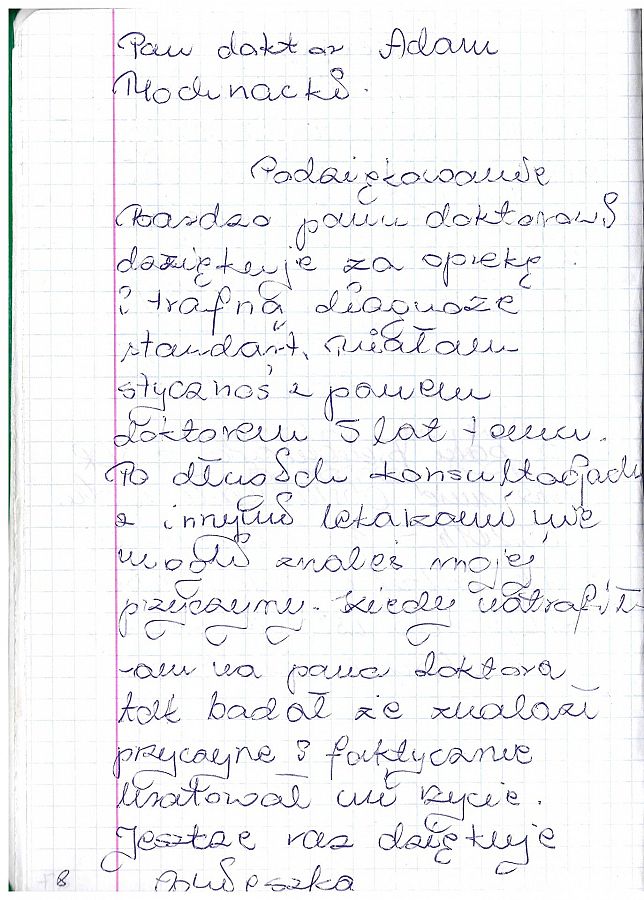 Pan doktor Adam
Modrnacki.
Podziękowanie
Bardzo panu doktorowi
dziękuje za opiekę
i trafną diagnoze
standart, miałam
stycznoś z panem
doktorem 5 lat temu.
Po długich konsultacjach
z innymi lekazami nie
mogli znaleś mojej
przyczyny. Kiedy natrafił-
-am na pana doktora
tak badał że znalazł
przyczyne i faktycznie
uratował mi życie.
Jeszcze raz dziękuje
8